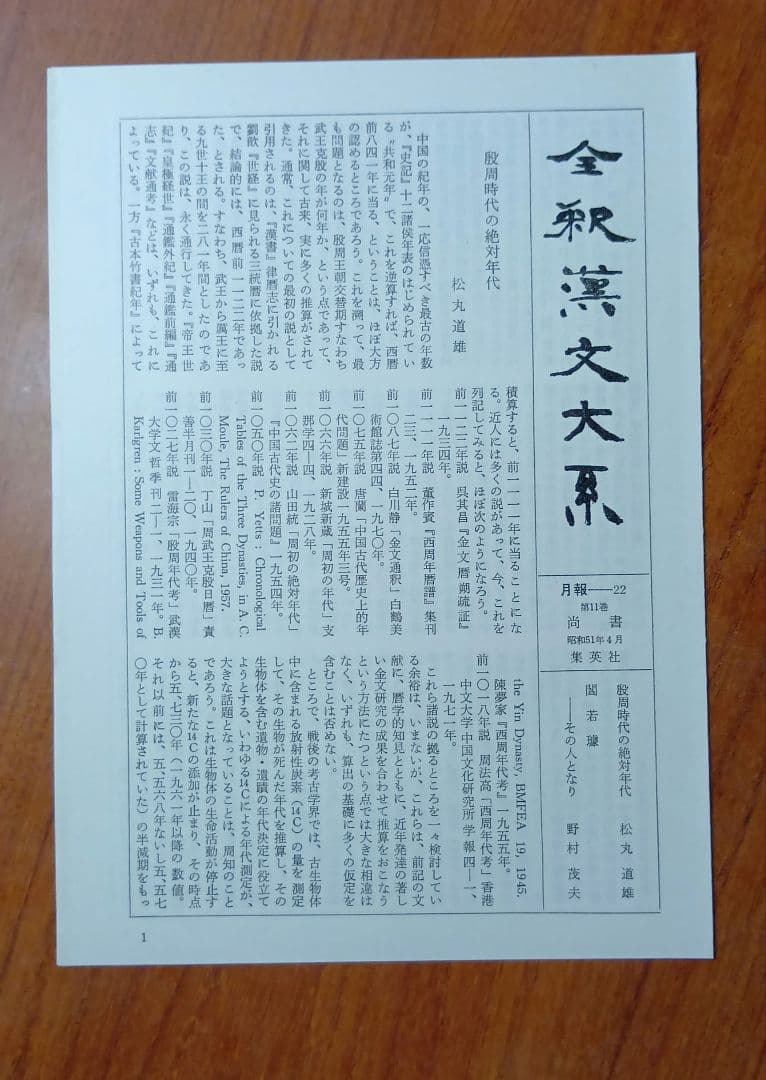 全釈漢文大系
月報——22
第11巻
尚書
昭和51年4月
集英社
殷周時代の絶対年代 松丸道雄
閻若璩
——その人となり 野村茂夫
殷周時代の絶対年代
松丸道雄
中国の紀年の、一応信憑すべき最古の年数
が、『史記』十二諸侯年表のはじめられてい
る〝共和元年〟で、これを逆算すれば、西暦
前八四一年に当る、ということは、ほぼ大方
の認めるところであろう。これを溯って、最
も問題となるのは、殷周王朝交替期すなわち
武王克殷の年が何年か、という点であって、
それに関して古来、実に多くの推算がされて
きた。通常、これについての最初の説として
引用されるのは、『漢書』律暦志に引かれる
劉歆『世経』に見られる三統暦に依拠した説
で、結論的には、西暦前一一二二年であっ
た、とされる。すなわち、武王から厲王に至
る九世十王の間を二八一年間としたのであ
り、この説は、永く通行してきた。『帝王世
紀』『皇極経世』『通鑑外紀』『通鑑前編』『通
志』『文献通考』などは、いずれも、これに
よっている。一方『古本竹書紀年』によって
積算すると、前一一一一年に当ることにな
る。近人には多くの説があって、今、これを
列記してみると、ほぼ次のようになろう。
前一一二二年説 呉其昌『金文暦朔疏証』
一九三四年。
前一一一一年説 董作賓『西周年暦譜』集刊
二三、一九五二年。
前一〇八七年説 白川静「金文通釈」白鶴美
術館誌第四四、一九七〇年。
前一〇七五年説 唐蘭「中国古代歴史上的年
代問題」新建設一九五五年三号。
前一〇六六年説 新城新蔵「周初の年代」支
那学四—四、一九二八年。
前一〇六二年説 山田統「周初の絶対年代」
『中国古代史の諸問題』一九五四年。
前一〇五〇年説 P. Yetts : Chronological
Tables of the Three Dynasties, in A. C.
Moule, The Rulers of China, 1957.
前一〇三〇年説 丁山「周武王克殷日暦」責
善半月刊一—二〇、一九四〇年。
前一〇二七年説 雷海宗「殷周年代考」武漢
大学文哲季刊二—一、一九三一年。B.
Karlgren : Some Weapons and Tools of
the Yin Dynasty, BMFEA 19, 1945.
陳夢家『西周年代考』一九五五年。
前一〇一八年説 周法高「西周年代考」香港
中文大学中国文化研究所学報四—一、
一九七一年。
これら諸説の拠るところを一々検討してい
る余裕は、いまないが、これらは、前記の文
献に、暦学的知見とともに、近年発達の著し
い金文研究の成果を合わせて推算をおこなう
という方法にたつという点では大きな相違は
なく、いずれも、算出の基礎に多くの仮定を
含むことは否めない。
ところで、戦後の考古学界では、古生物体
中に含まれる放射性炭素（¹⁴C）の量を測定
して、その生物が死んだ年代を推算し、その
生物体を含む遺物・遺蹟の年代決定に役立て
ようとする、いわゆる¹⁴Cによる年代測定が、
大きな話題となっていることは、周知のこと
であろう。これは生物体の生命活動が停止す
ると、新たな¹⁴Cの添加が止まり、その時点
から五、七三〇年（一九六一年以降の数値。
それ以前には、五、五六八年ないし五、五七
〇年として計算されていた）の半減期をもっ
1